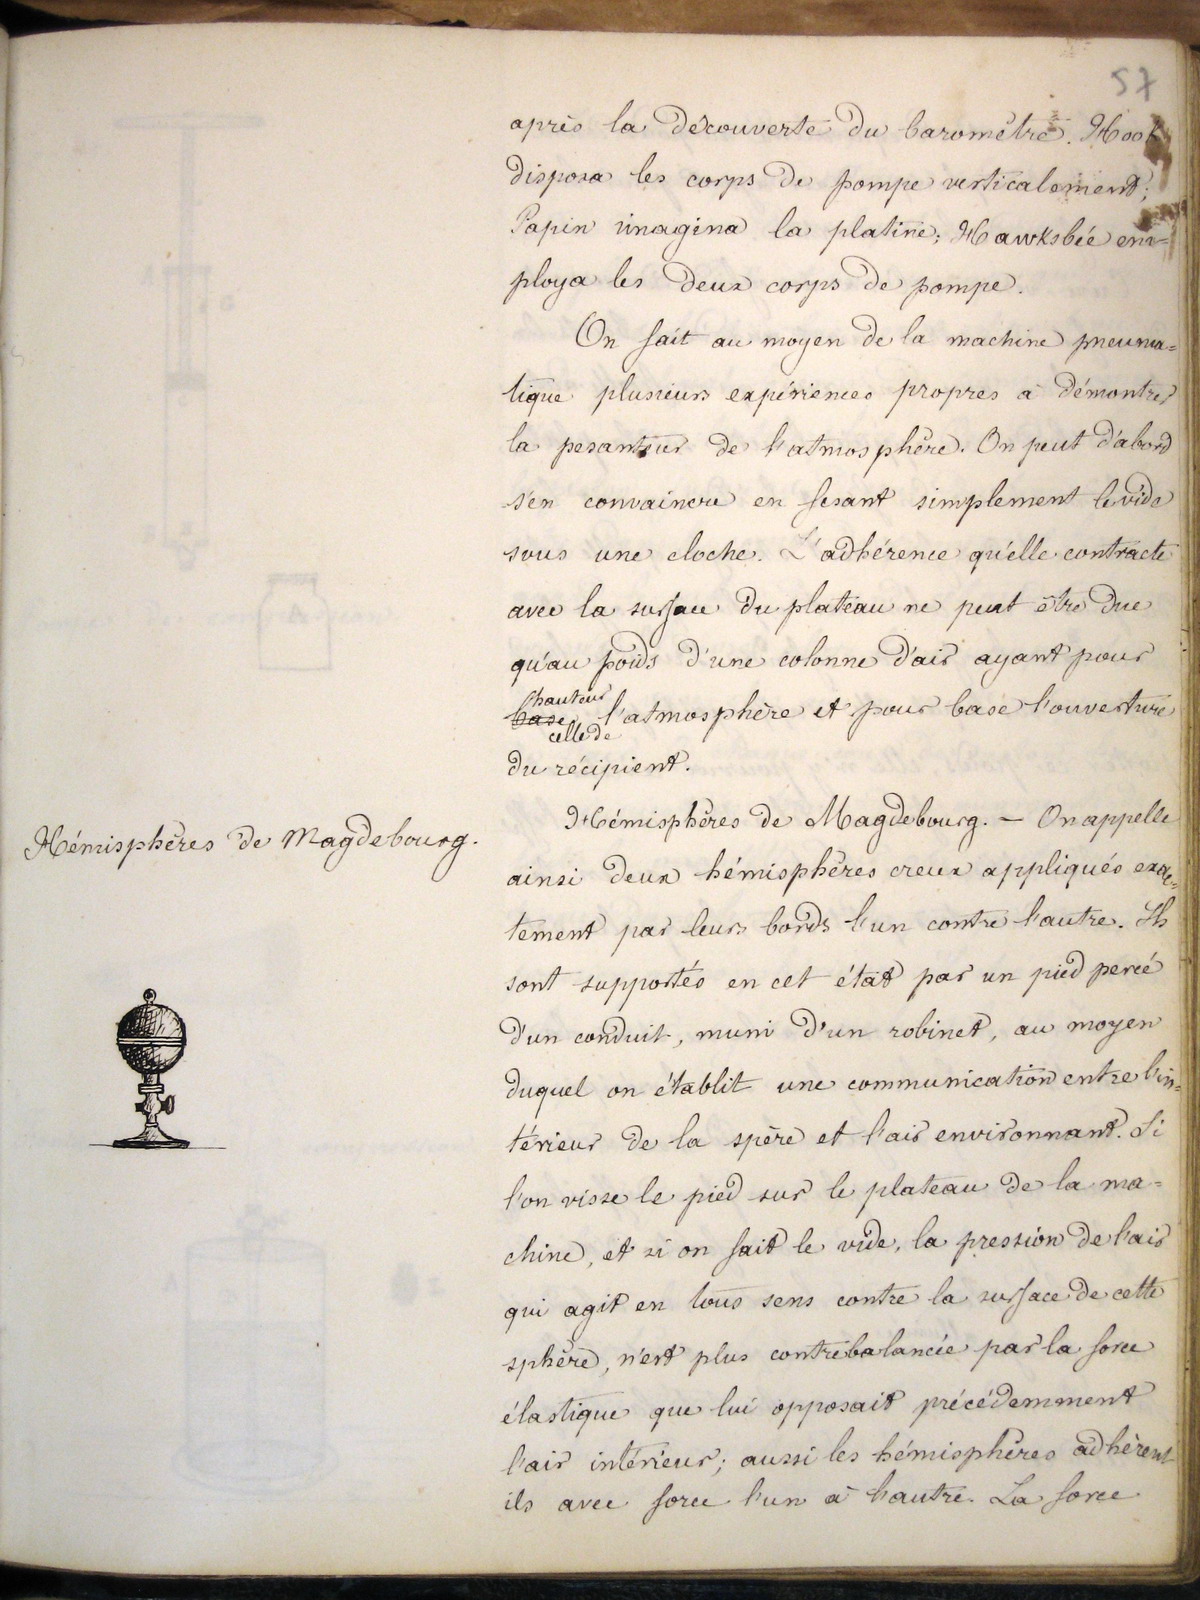 57
après la découverte du baromètre. Hook
disposa les corps de pompe verticalement;
Papin imagina la platine; Hawksbée em=
ploya les deux corps de pompe.
On fait au moyen de la machine pneuma=
tique plusieurs expériences propres à démontrer
la pesanteur de l'atmosphère. On peut d'abord
s'en convaincre en fesant simplement le vide
sous une cloche. L'adhérence qu'elle contracte
avec la surface du plateau ne peut être due
qu'au poids d'une colonne d'air ayant pour
hauteur
base l'atmosphère et pour base l'ouverture
celle de
du récipient.
Hémisphères de Magdebourg.
Hémisphères de Magdebourg. — On appelle
ainsi deux hémisphères creux appliqués exac=
tement par leurs bords l'un contre l'autre. Ils
sont supportés en cet état par un pied percé
d'un conduit, muni d'un robinet, au moyen
duquel on établit une communication entre l'in=
térieur de la spère et l'air environnant. Si
l'on visse le pied sur le plateau de la ma=
chine, et si on fait le vide, la pression de l'air
qui agit en tous sens contre la surface de cette
sphère, n'est plus contrebalancée par la force
élastique que lui opposait précédemment
l'air intérieur; aussi les hémisphères adhèrent
ils avec force l'un à l'autre. La force